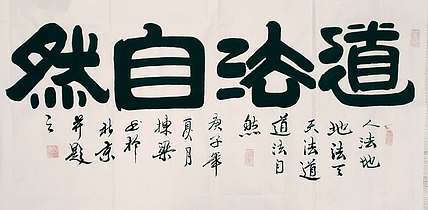 道法自然
人法地
地法天
天法道
道法自
然
庚子年
夏月
棟梁
书於
北京
并题
之